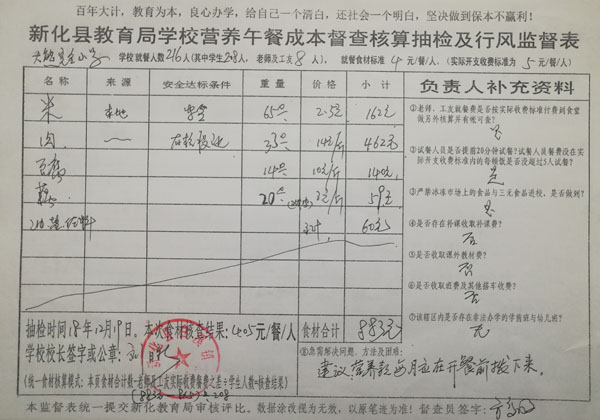 百年大计，教育为本，良心办学，给自己一个清白，还社会一个明白，坚决做到保本不赢利！
新化县教育局学校营养午餐成本督查核算抽检及行风监督表
学校就餐人数216人(其中学生208人，老师及工友8人)，就餐食材标准4元/餐/人。(实际开支收费标准为5元/餐/人)
名称 来源 安全达标条件 重量 价格 小计
米 本地 65 2.5元 162元
肉 33 14元/斤 462元
豆腐 14 10元/斤 140元
20 59元
60元
食材合计 883元
抽检时间18年12月19日。本次食材核查结果:4.05元/餐/人
学校校长签字或公章:
(统一食材核算模式：本页食材合计数-老师及工友实际收费餐费之差÷学生人数=核查结果)
负责人补充资料
①老师、工友就餐费是否按实际收费标准付费到食堂做另外核算并有帐可查?
②试餐人员是否提前20分钟试餐?试餐人员餐费没在实际开支收费标准内的每顿饭是否没超过5人试餐?
是
③严禁冰冻市场上的食品与三元食品进校，是否做到?
是
④是否存在补课收取补课费?
否
⑤是否收取课外教材费?
否
⑥是否收取班费及其他搭车收费?
否
⑦该辖区内是否存在非法办学的学前班与幼儿班?
无
⑧您需解决问题、方法及困难:
建议营养款每月应在开餐前拨下来。
本监督表统一提交新化教育局审核评比。数据涂改视为无效，以原笔迹为准! 督查员签字: